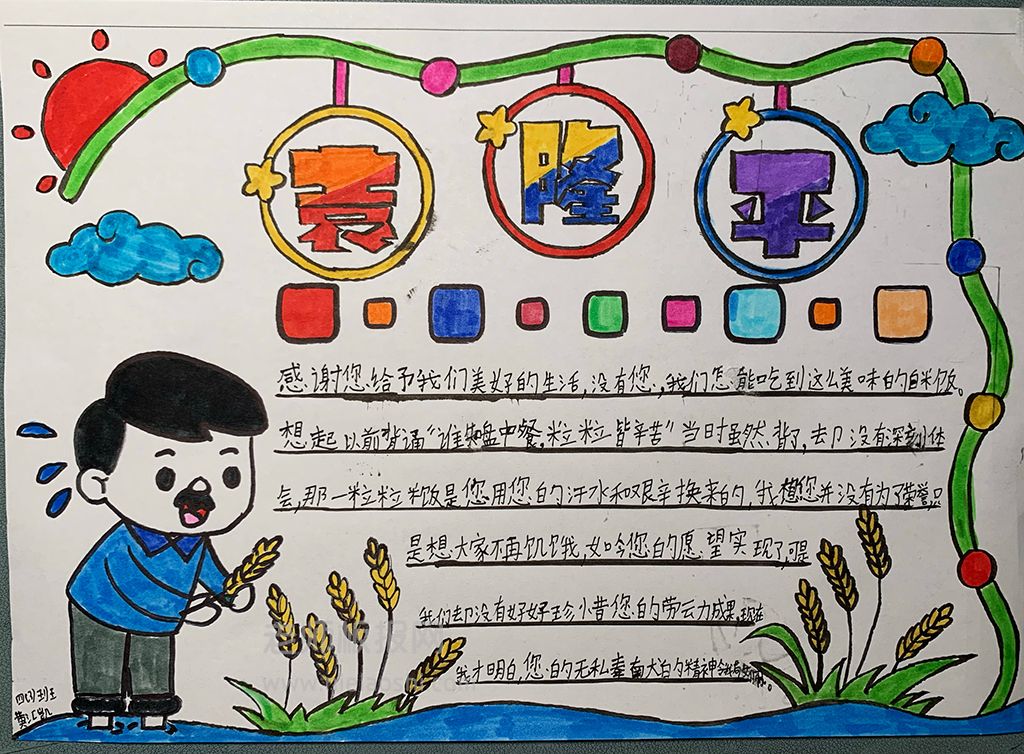 袁隆平
感谢您给予我们美好的生活,没有您,我们怎能吃到这么美味的白米饭。
想起以前背诵“谁知盘中餐,粒粒皆辛苦”当时虽然背了,却没有深刻体
会,那一粒粒米饭是您用您的汗水和艰辛换来的,我想您并没有为了荣誉只
是想大家不再饥饿,如今您的愿望实现了,可是
我们却没有好好珍惜您的劳动力成果。现在
我才明白,您的无私奉献伟大的精神
四(1)班
黄汇凯